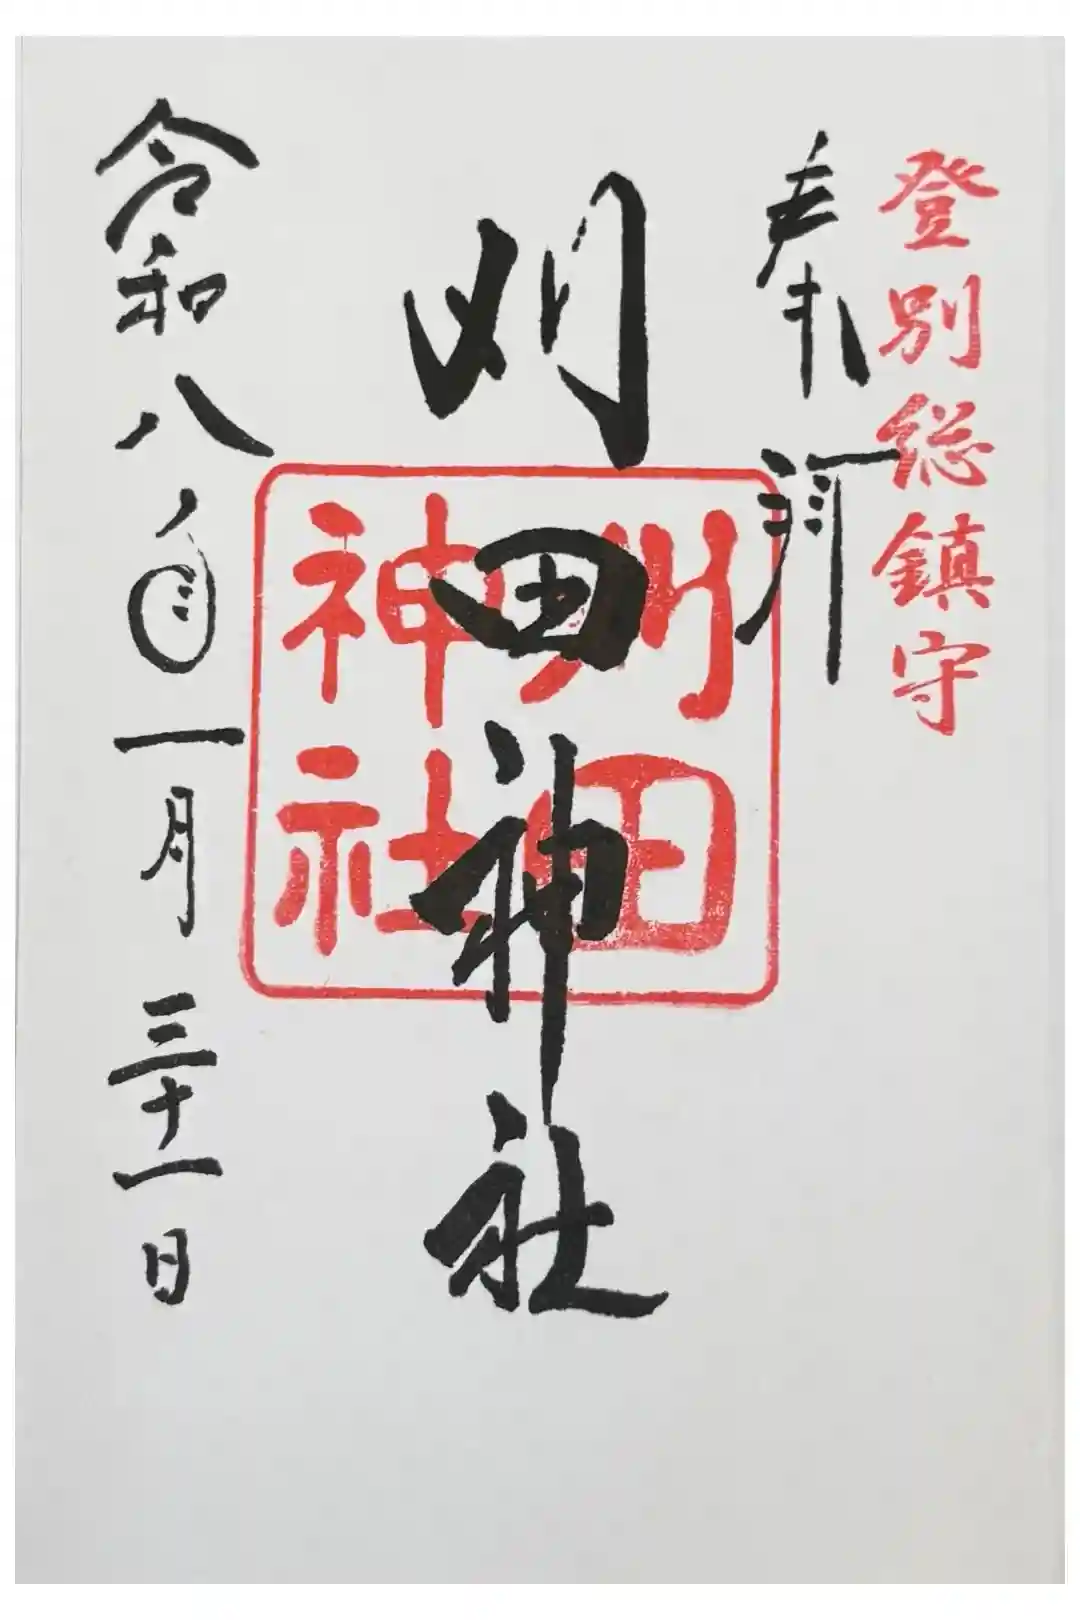 登別総鎮守
奉拝
刈田神社
刈田
神社
令和八年一月三十一日